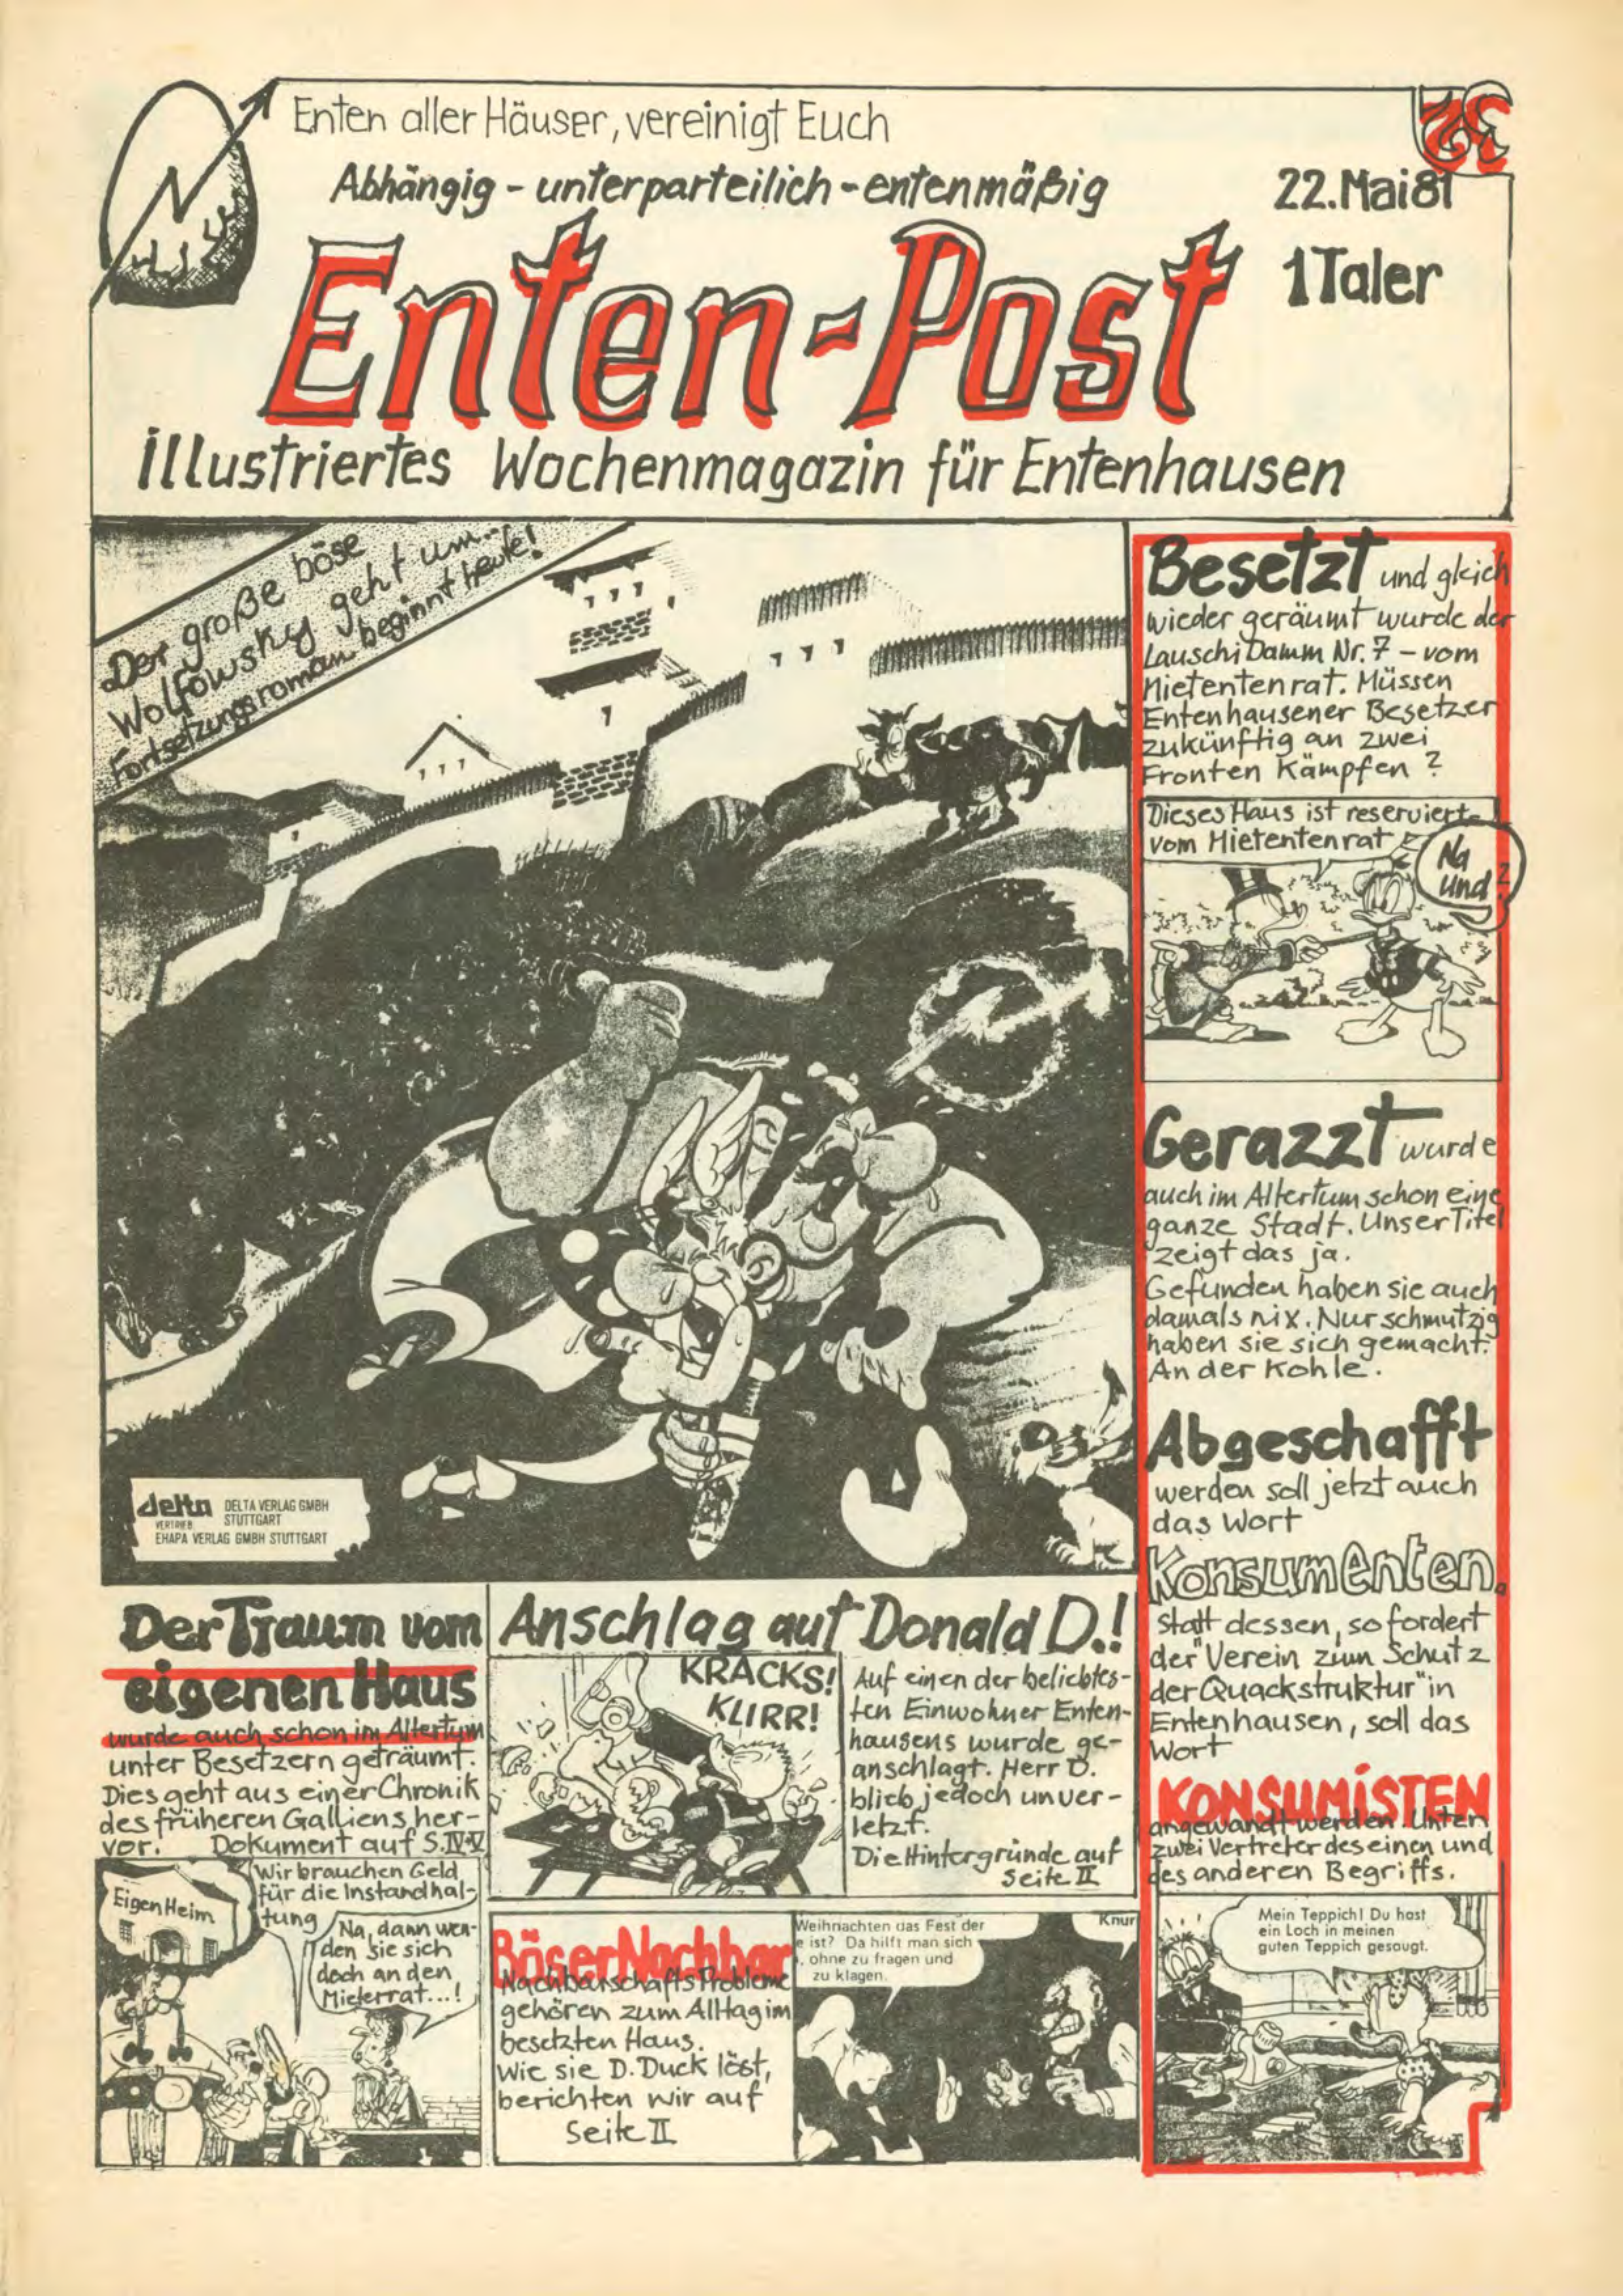 Enten aller Häuser, vereinigt Euch
Abhängig - unterparteilich - entenmäßig
22. Mai 81
Enten-Post
1 Taler
illustriertes Wochenmagazin für Entenhausen
Der große böse
Wolfowsky geht um...
Fortsetzungsroman beginnt heute!
delta
DELTA VERLAG GMBH
STUTTGART
VERTRIEB
EHAPA VERLAG GMBH STUTTGART
Besetzt und gleich
wieder geräumt wurde der
Lauschi Damm Nr. 7 - vom
Mietentenrat. Müssen
Entenhausener Besetzer
zukünftig an zwei
Fronten kämpfen?
Dieses Haus ist reserviert
vom Mietentenrat
Na
und?
Gerazzt wurde
auch im Altertum schon eine
ganze Stadt. Unser Titel
zeigt das ja.
Gefunden haben sie auch
damals nix. Nur schmutzig
haben sie sich gemacht.
An der Kohle.
Abgeschafft
werden soll jetzt auch
das Wort
Konsumenten.
Statt dessen, so fordert
der "Verein zum Schutz
der Quackstruktur" in
Entenhausen, soll das
Wort
KONSUMISTEN
angewandt werden. Unten
zwei Vertreter des einen und
des anderen Begriffs.
Mein Teppich! Du hast
ein Loch in meinen
guten Teppich gesaugt.
Der Traum vom
eigenen Haus
wurde auch schon im Altertum
unter Besetzern geträumt.
Dies geht aus einer Chronik
des früheren Galliens her-
vor. Dokument auf S. IV-V
Eigen Heim
Wir brauchen Geld
für die Instandhal-
tung
Na, dann wen-
den sie sich
doch an den
Mieterrat...!
Anschlag auf Donald D.!
KRACKS!
KLIRR!
Auf einen der beliebtes-
ten Einwohner Enten-
hausens wurde ge-
anschlagt. Herr D.
blieb jedoch unver-
letzt.
Die Hintergründe auf
Seite II
Böser Nachbar
Nachbarschaftsprobleme
gehören zum Alltag im
besetzten Haus.
Wie sie D. Duck löst,
berichten wir auf
Seite II
Weihnachten das Fest der
e ist? Da hilft man sich
, ohne zu fragen und
zu klagen.
Knur